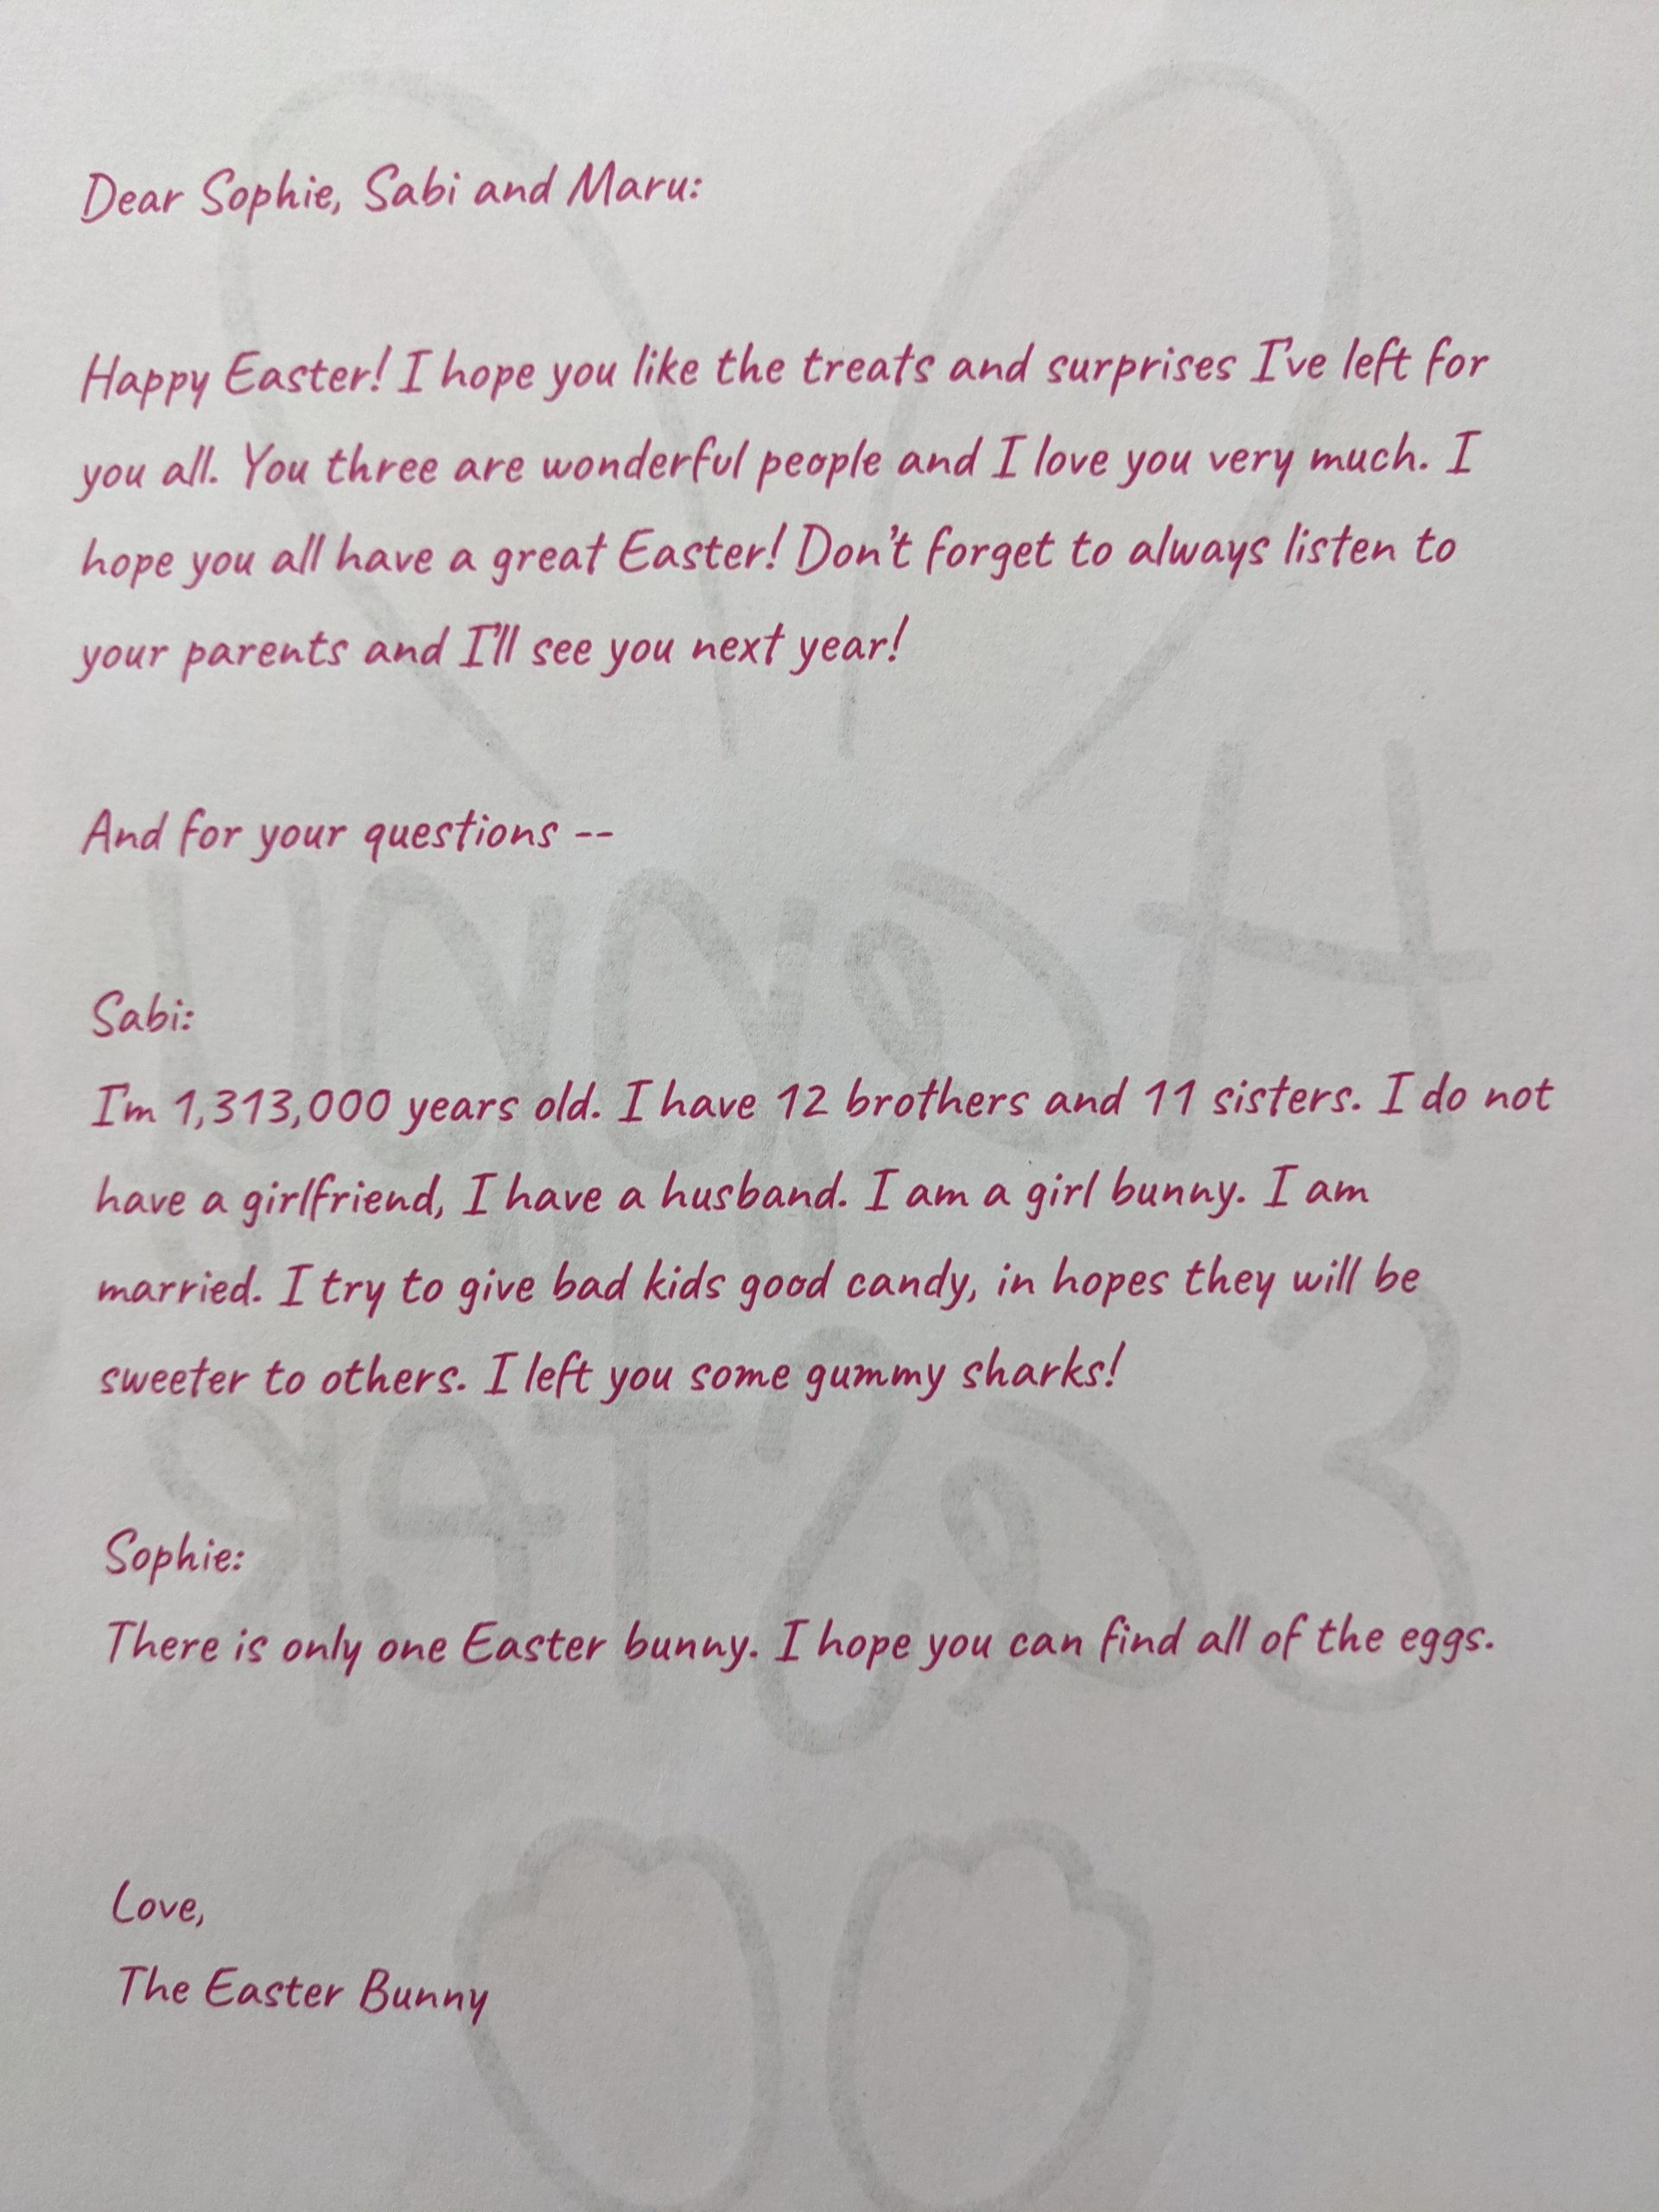 Dear Sophie, Sabi and Maru:
Happy Easter! I hope you like the treats and surprises I've left for
you all. You three are wonderful people and I love you very much. I
hope you all have a great Easter! Don't forget to always listen to
your parents and I'll see you next year!
And for your questions --
Sabi:
I'm 1,313,000 years old. I have 12 brothers and 11 sisters. I do not
have a girlfriend, I have a husband. I am a girl bunny. I am
married. I try to give bad kids good candy, in hopes they will be
sweeter to others. I left you some gummy sharks!
Sophie:
There is only one Easter bunny. I hope you can find all of the eggs.
Love,
The Easter Bunny
Happy
EaSTER